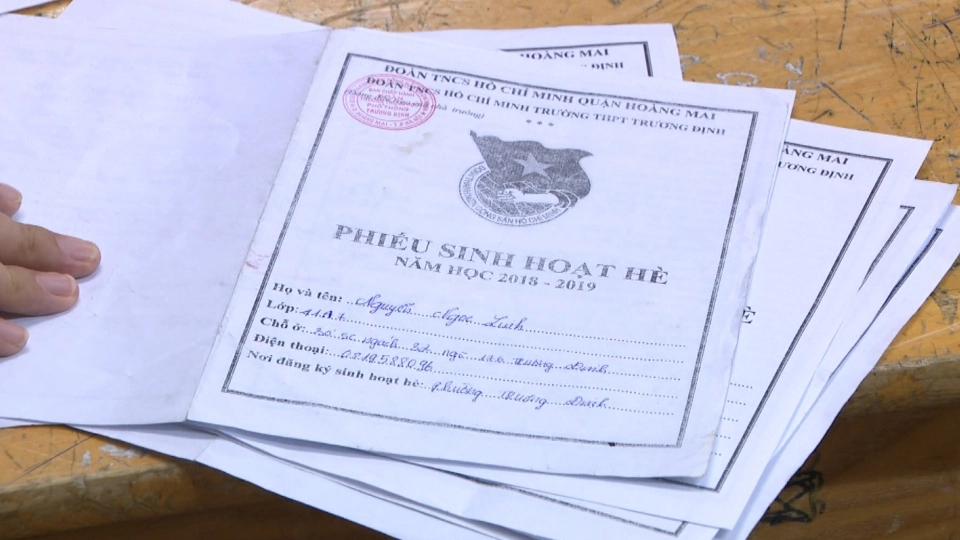 ĐOÀN TNCS HỒ CHÍ MINH QUẬN HOÀNG MAI
ĐOÀN TNCS HỒ CHÍ MINH TRƯỜNG THPT TRƯƠNG ĐỊNH
trường)
***
PHIẾU SINH HOẠT HÈ
NĂM HỌC 2018 - 2019
Họ và tên: Nguyễn Ngọc Linh
Lớp: 11A1
Chỗ ở: ngách ngõ Trương Định
Điện thoại: 0819588096
Nơi đăng ký sinh hoạt hè: phường Trương Định
HOÀNG MAI
ĐỊNH
OÀNG MAI
ƯƠNG ĐỊNH
È